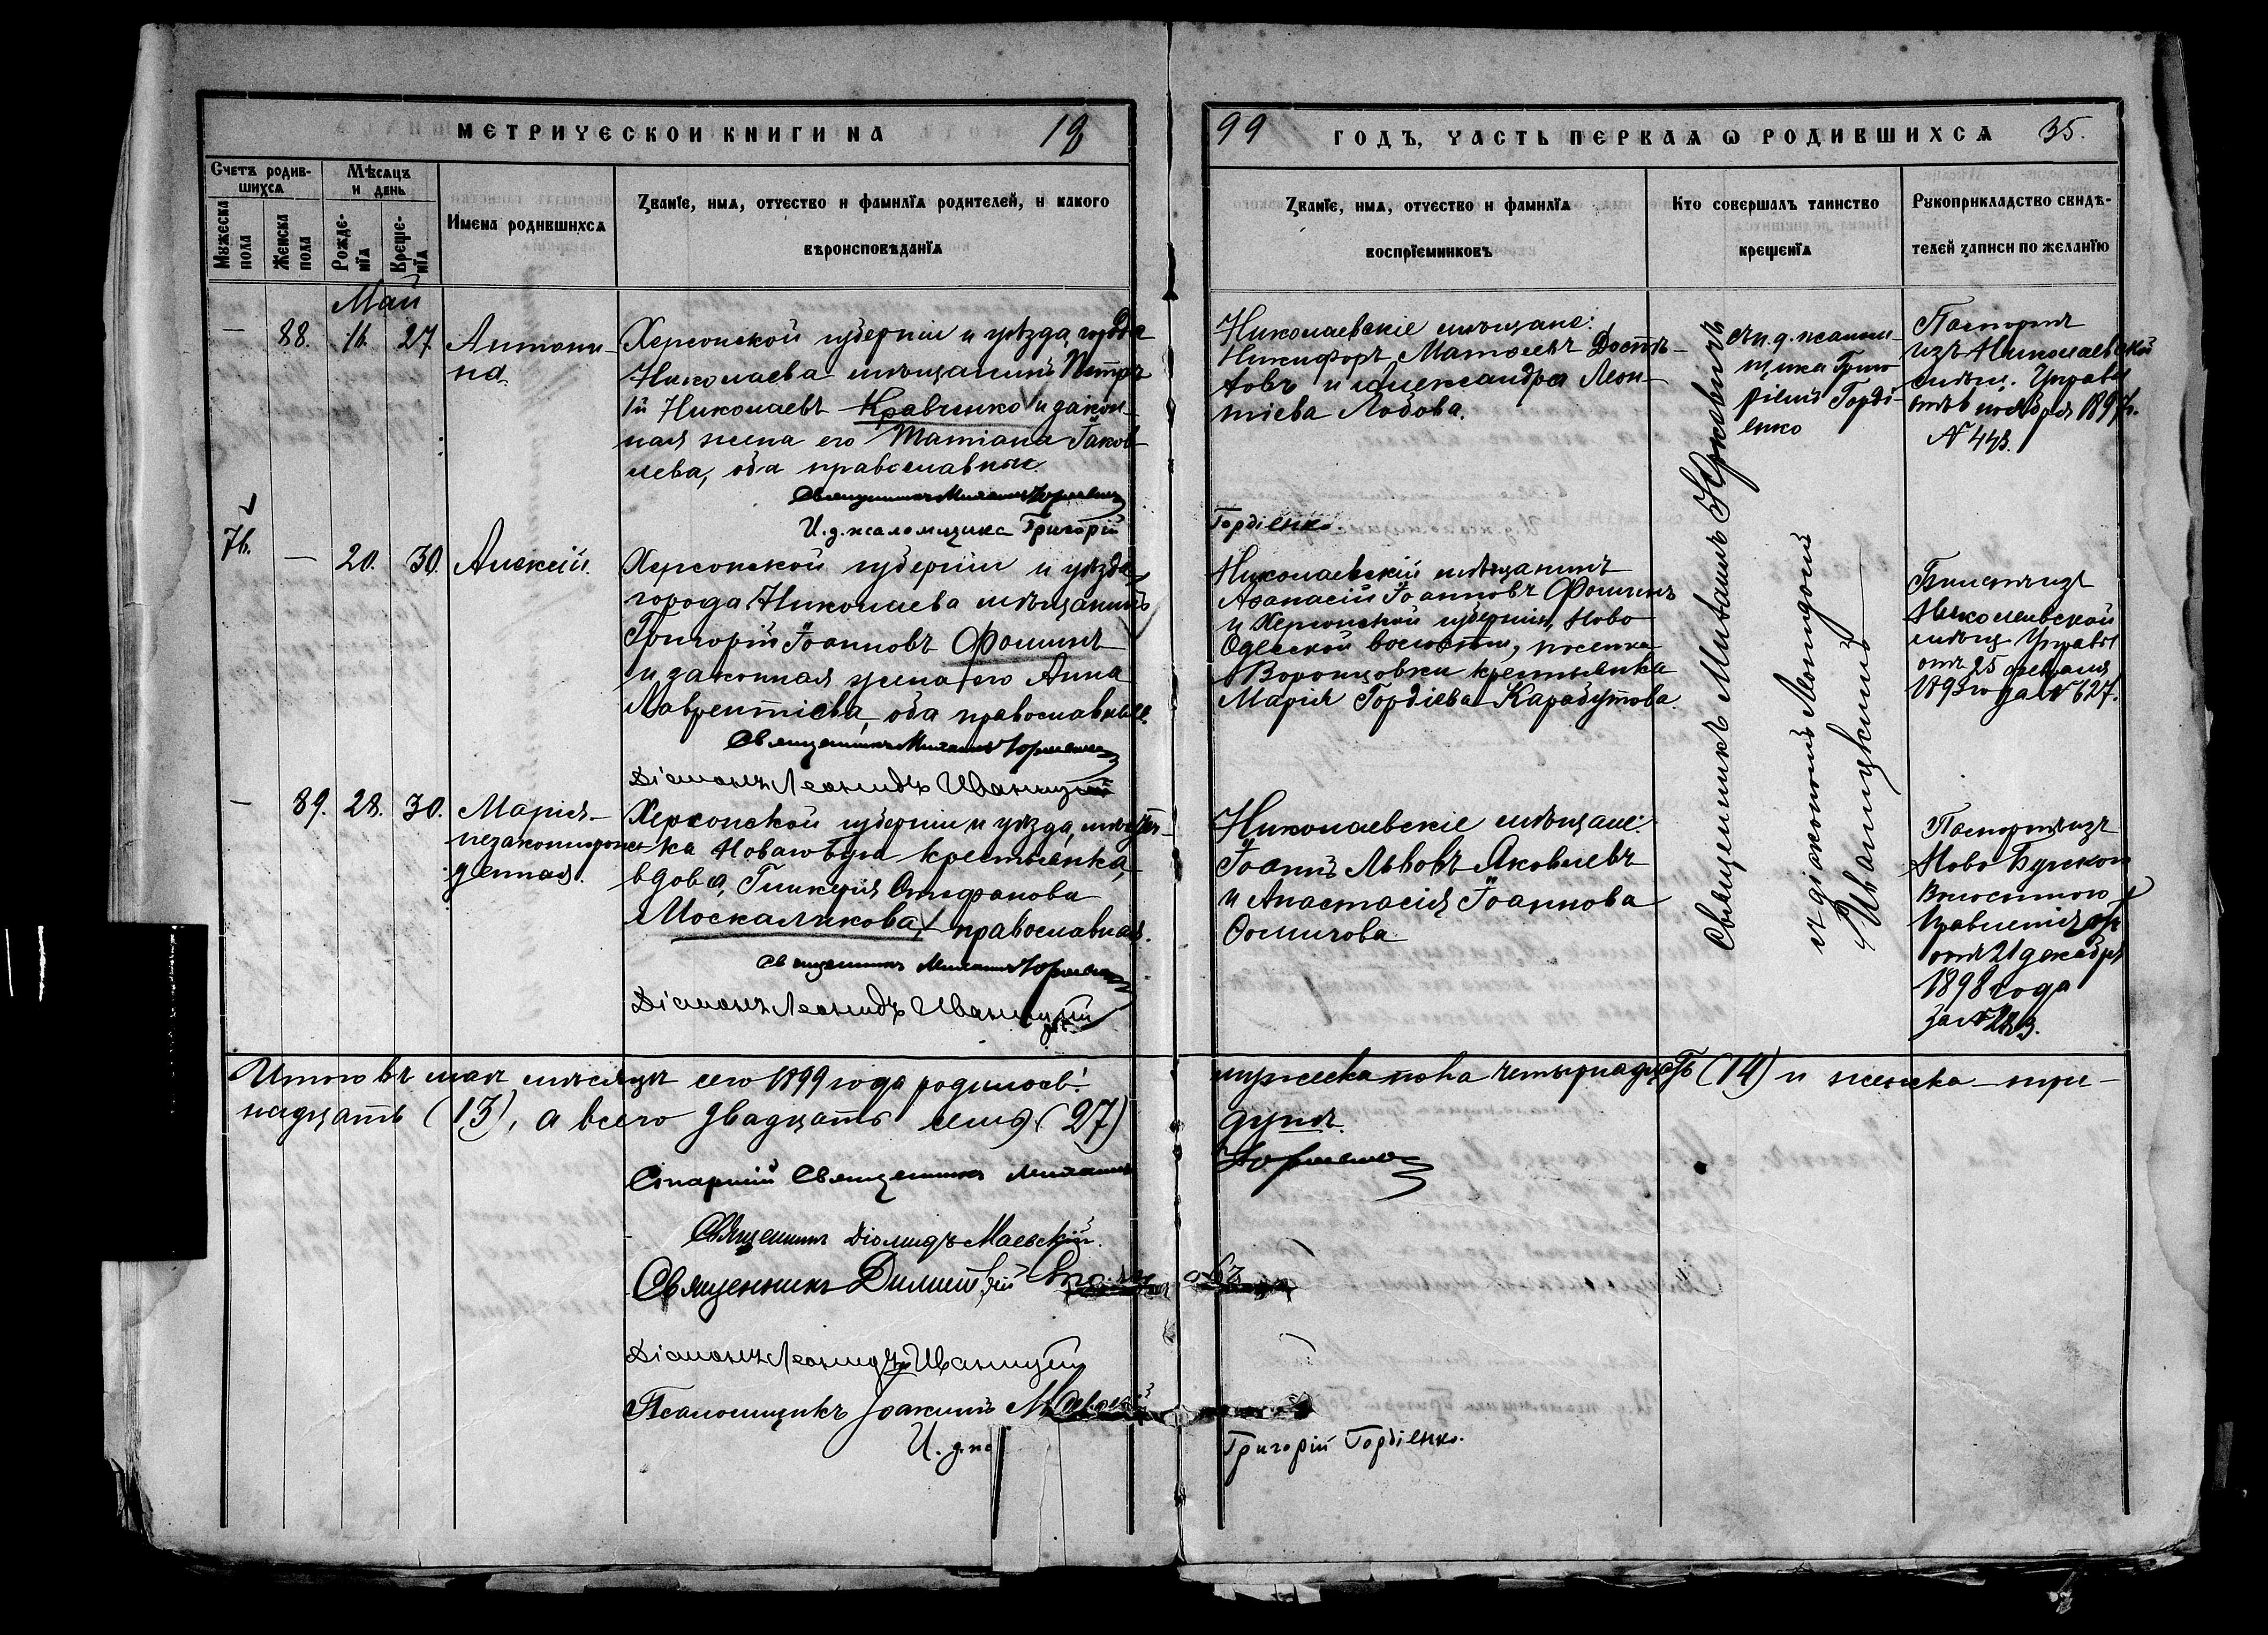 МЕТРИЧЕСКОЙ КНИГИ НА 18
99 ГОДЪ, ЧАСТЬ ПЕРВАѦ Ѡ РОДИВШИХСѦ 35.
Счетъ родив-
шихсѧ
Мѣсѧцъ
и день
Мꙋжеска
пола
Женска
пола
Рожде-
нїѧ
Креще-
нїѧ
Имена родившихсѧ
Званїе, имѧ, отчество и фамилїѧ родителей, и какого
вѣроисповѣданїѧ
Званїе, имѧ, отчество и фамилїѧ
воспрїемниковъ
Кто совершалъ таинство
крещенїѧ
Рꙋкоприкладство свидѣ-
телей записи по желанїю
Май
— 88. 16. 27
Антони-
на.
Херсонской губерніи и уѣзда, города
Николаева мѣщанинъ Петръ
Николаевъ Кравченко и закон-
ная жена его Татіана Іаков-
лева, оба православные.
Священникъ Михаилъ Юркевичъ
И. д. псаломщика Григорій
Николаевскіе мѣщане:
Никифоръ Матѳеевъ
и Александра Леон-
тіева Лобова.
Гордіенко.
съ и. д. псалом-
щика Григо
ріемъ Горді-
енко
Паспортъ
изъ Николаевской
мѣщ. Управы
ноября 1897 г.
№ 443.
76. — 20. 30.
Алексій.
Херсонской губерніи и уѣзда
города Николаева мѣщанинъ
Григорій Іоанновъ Фоминъ
и законная жена его Анна
Лаврентіева, оба православные.
Священникъ Михаилъ Юркевичъ
Діаконъ Леонидъ Иваницкій
Николаевскій мѣщанинъ
Аѳанасій Іоанновъ Фоминъ
и Херсонской губерніи, Ново
Одесской волости, поселка
Воронцовки крестьянка
Марія Гордіева Карабутова.
Священникъ Михаилъ Юркевичъ
съ діакономъ Леонидомъ
Иваницкимъ
Билетъ изъ
Николаевской
мѣщ. Управы
отъ 25 февраля
1893 года № 627.
— 89. 28. 30.
Марія-
незаконнорож-
денная.
Херсонской губерніи и уѣзда, мѣстеч-
ка Новаго Буга крестьянка,
вдова, Гликерія Стефанова
Москаликова, православная.
Священникъ Михаилъ Юркевичъ
Діаконъ Леонидъ Иваницкій
Николаевскіе мѣщане:
Іоаннъ Львовъ Яковлевъ
и Анастасія Іоаннова
Паспортъ изъ
Ново Бугскаго
Волостного
Правленія
отъ 21 декабря
1898 года
за №
Итого въ маѣ мѣсяцѣ сего 1899 года родилось:
мужеска пола четырнадцать (14) и женска - три-
надцать (13), а всего двадцать семь (27)
душъ.
Старшій Священникъ Михаилъ
Юркевичъ
Священникъ Діомидъ Маевскій.
Священникъ Димитрій
Діаконъ Леонидъ Иваницкій
Псаломщикъ Іоакимъ
И. д. пс
Григорій Гордіенко.